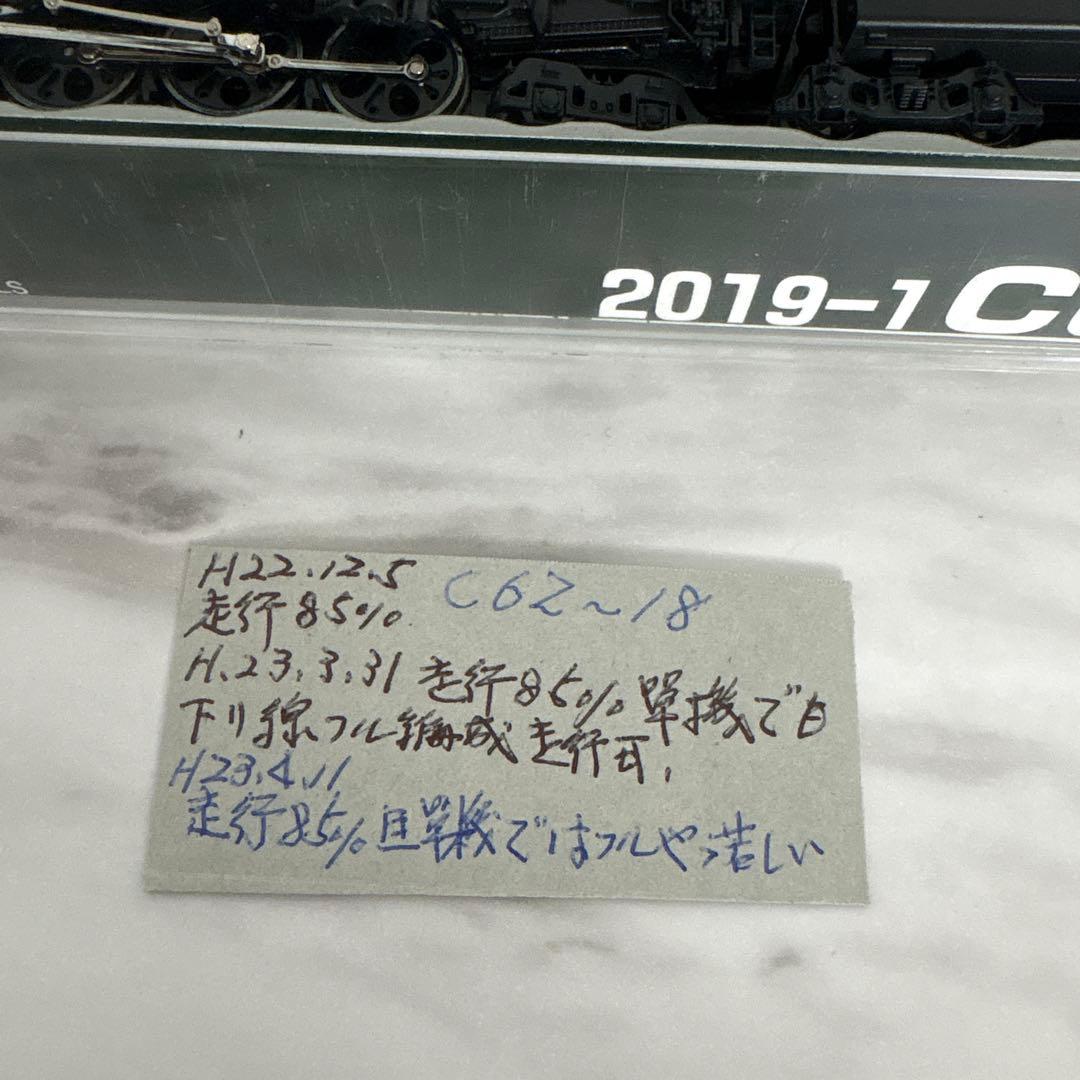 LS
2019-1 C
H22.12.5
C62~18
走行85%
H.23.3.31 走行85% 單機でも
下り線フル編成走行可.
H23.4.11
走行85% 但單機ではフルやゝ苦しい